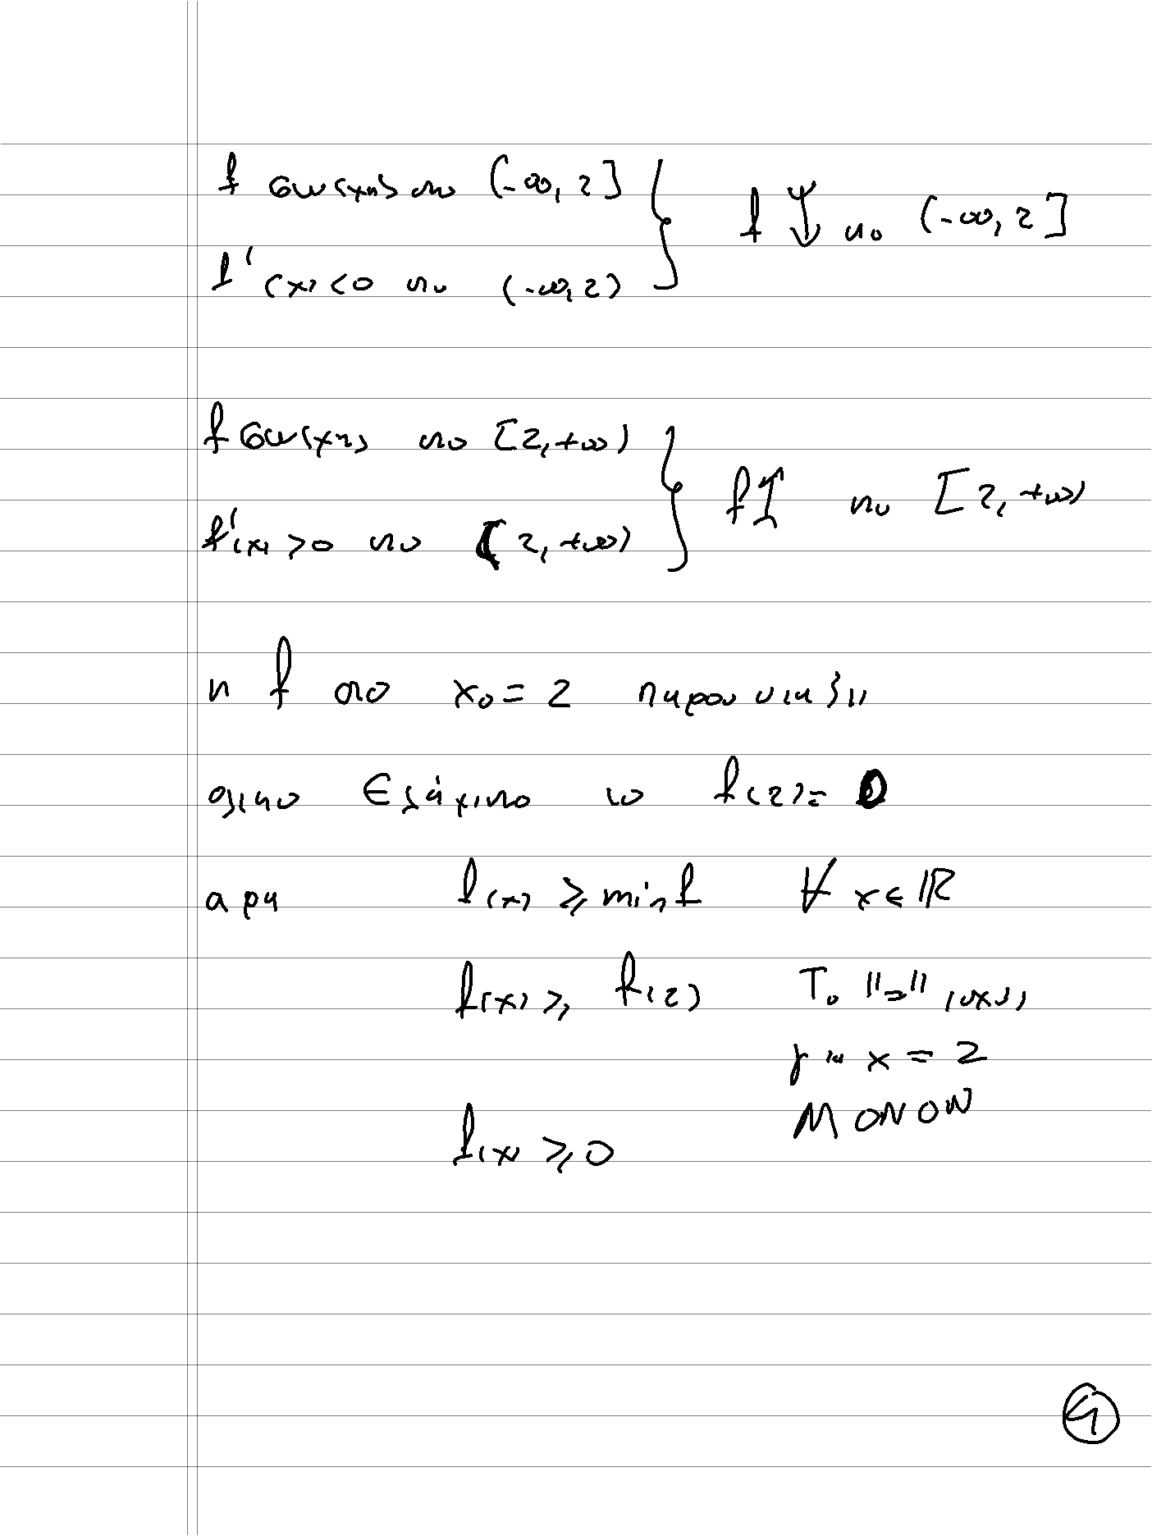 f συνεχης στο (-∞, 2]
f'(x) < 0 στο (-∞, 2)
f ↓ στο (-∞, 2]
f συνεχης στο [2, +∞)
f'(x) > 0 στο (2, +∞)
f ↑ στο [2, +∞)
η f στο x₀ = 2 παρουσιαζει
ολικο Ελάχιστο το f(2) = 0
αρα f(x) ⩾ min f ∀ x ∈ ℝ
f(x) ⩾ f(2) Το "=" ισχυει
για x = 2
ΜΟΝΟΝ
f(x) ⩾ 0